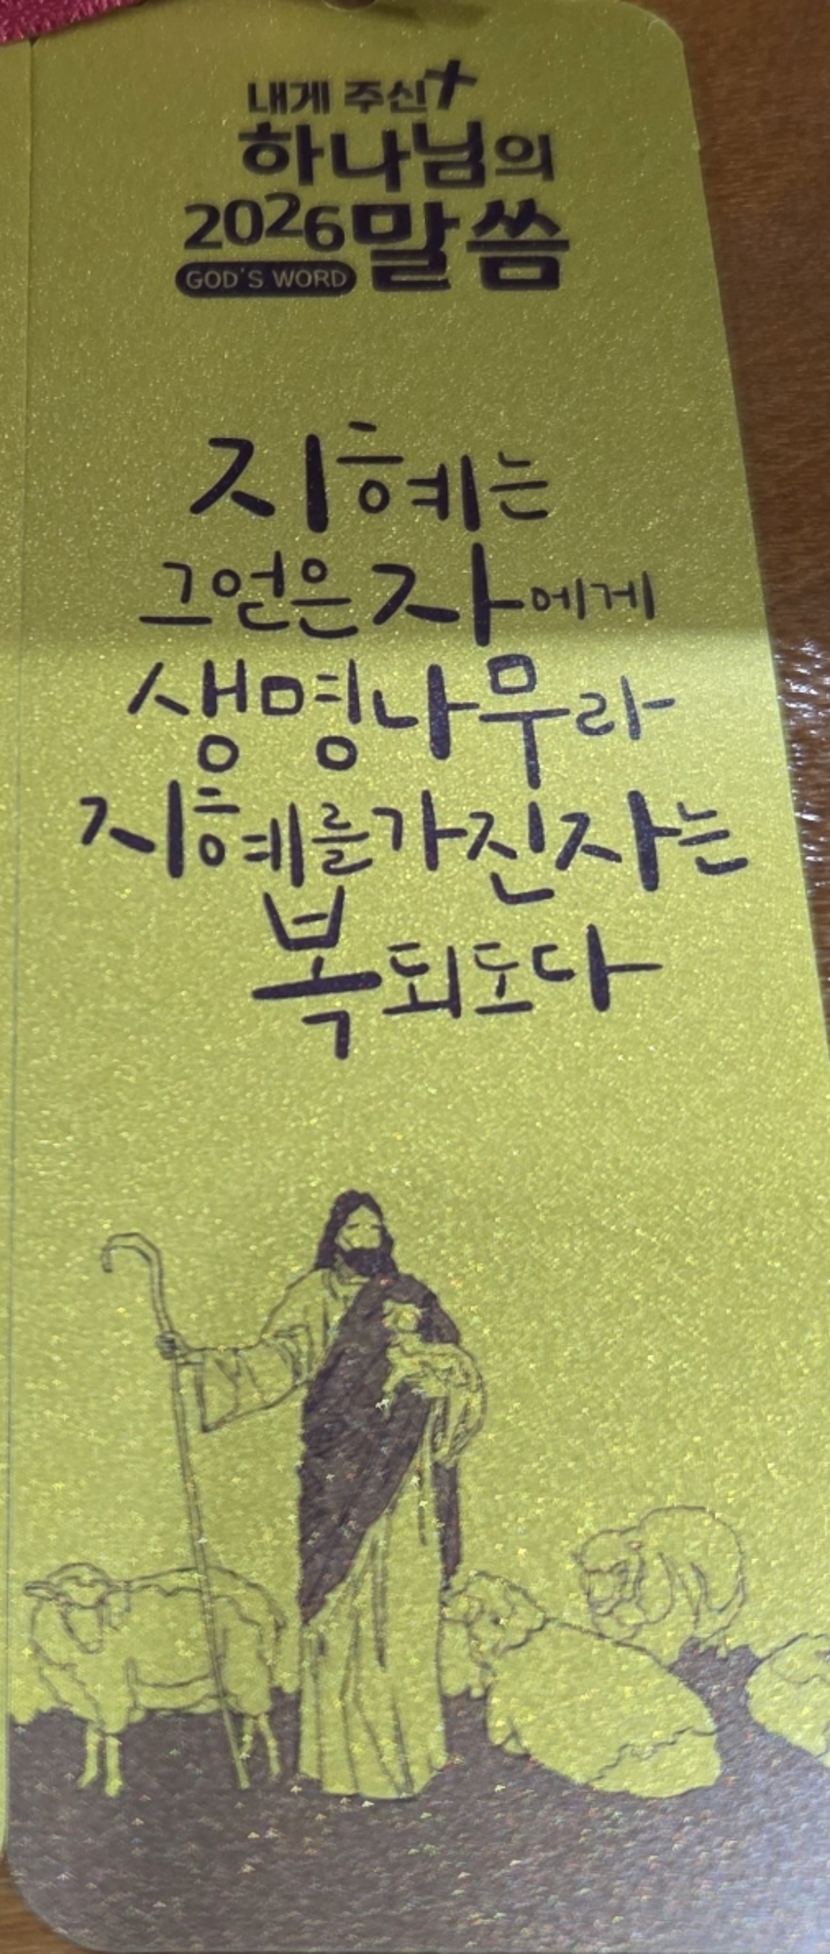 내게 주신
하나님의
2026 말씀
GOD'S WORD
지혜는
그 얻은 자에게
생명나무라
지혜를 가진 자는
복되도다